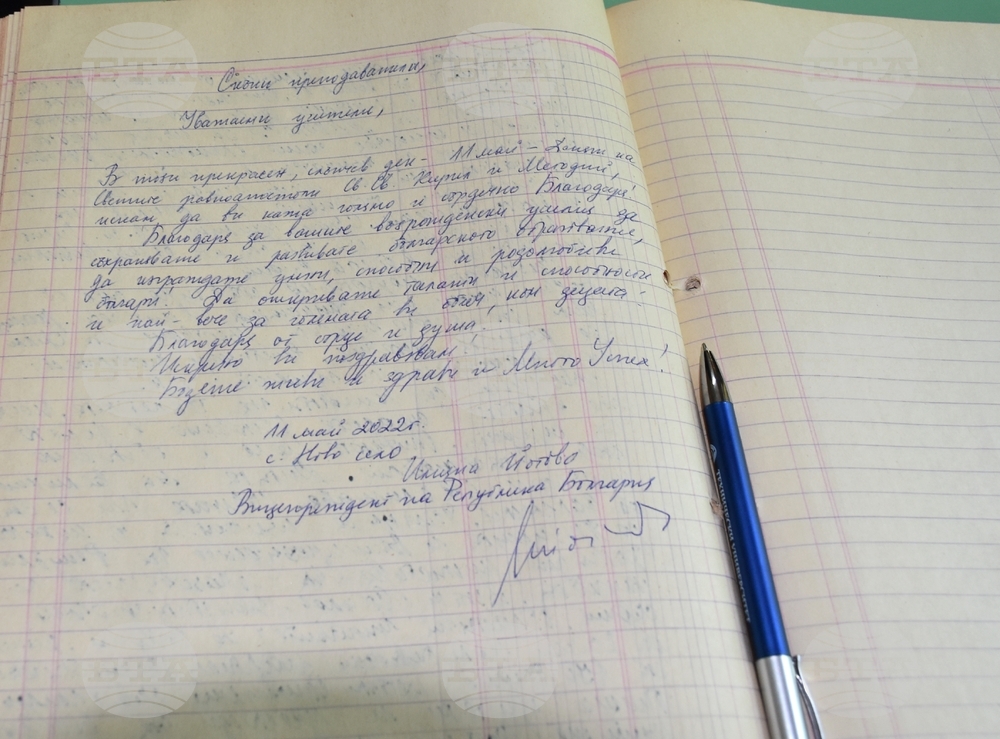 Скъпи преподаватели,
Уважаеми учители,
В този прекрасен, слънчев ден - 11 май - Денят на
Светите равноапостоли Св. Св. Кирил и Методий,
искам да ви кажа голямо и сърдечно Благодаря!
Благодаря за вашите възрожденски усилия да
съхранявате и развивате българското образование,
да изграждате умни, способни и родолюбиви
българи! Да откривате таланти и способности
и най-вече за голямата ви обич към децата!
Благодаря от сърце и душа!
Искрено ви поздравявам!
Бъдете живи и здрави и Много Успех!
11 май 2022г.
с. Ново село
Илияна Йотова
Вицепрезидент на Република България
БТА